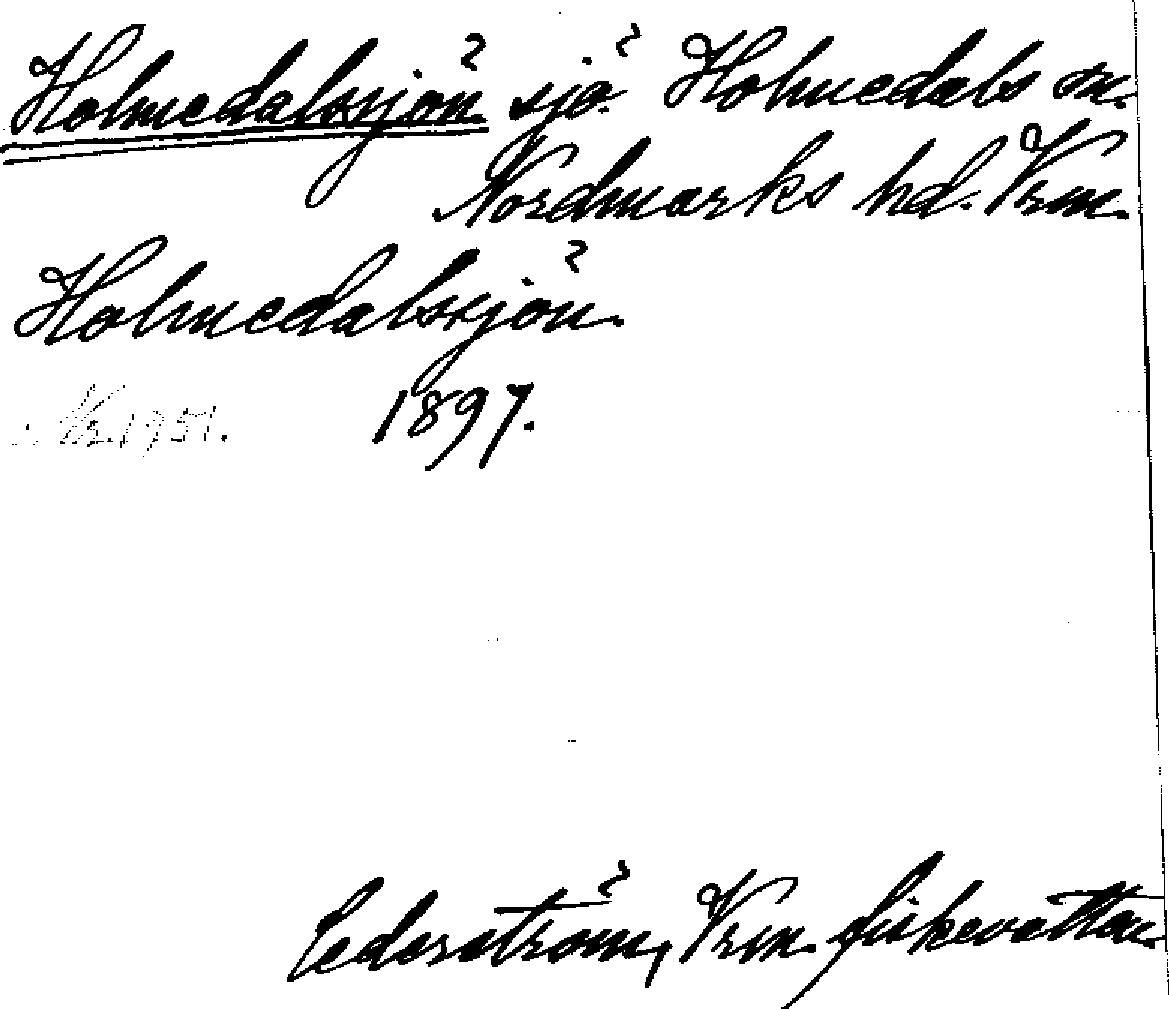 Holmedalssjön. sjö. Holmedals sn.
Nordmarks hd. Vrm.
Holmedalssjön.
1897.
Cederström, Vrm. fiskevatten.